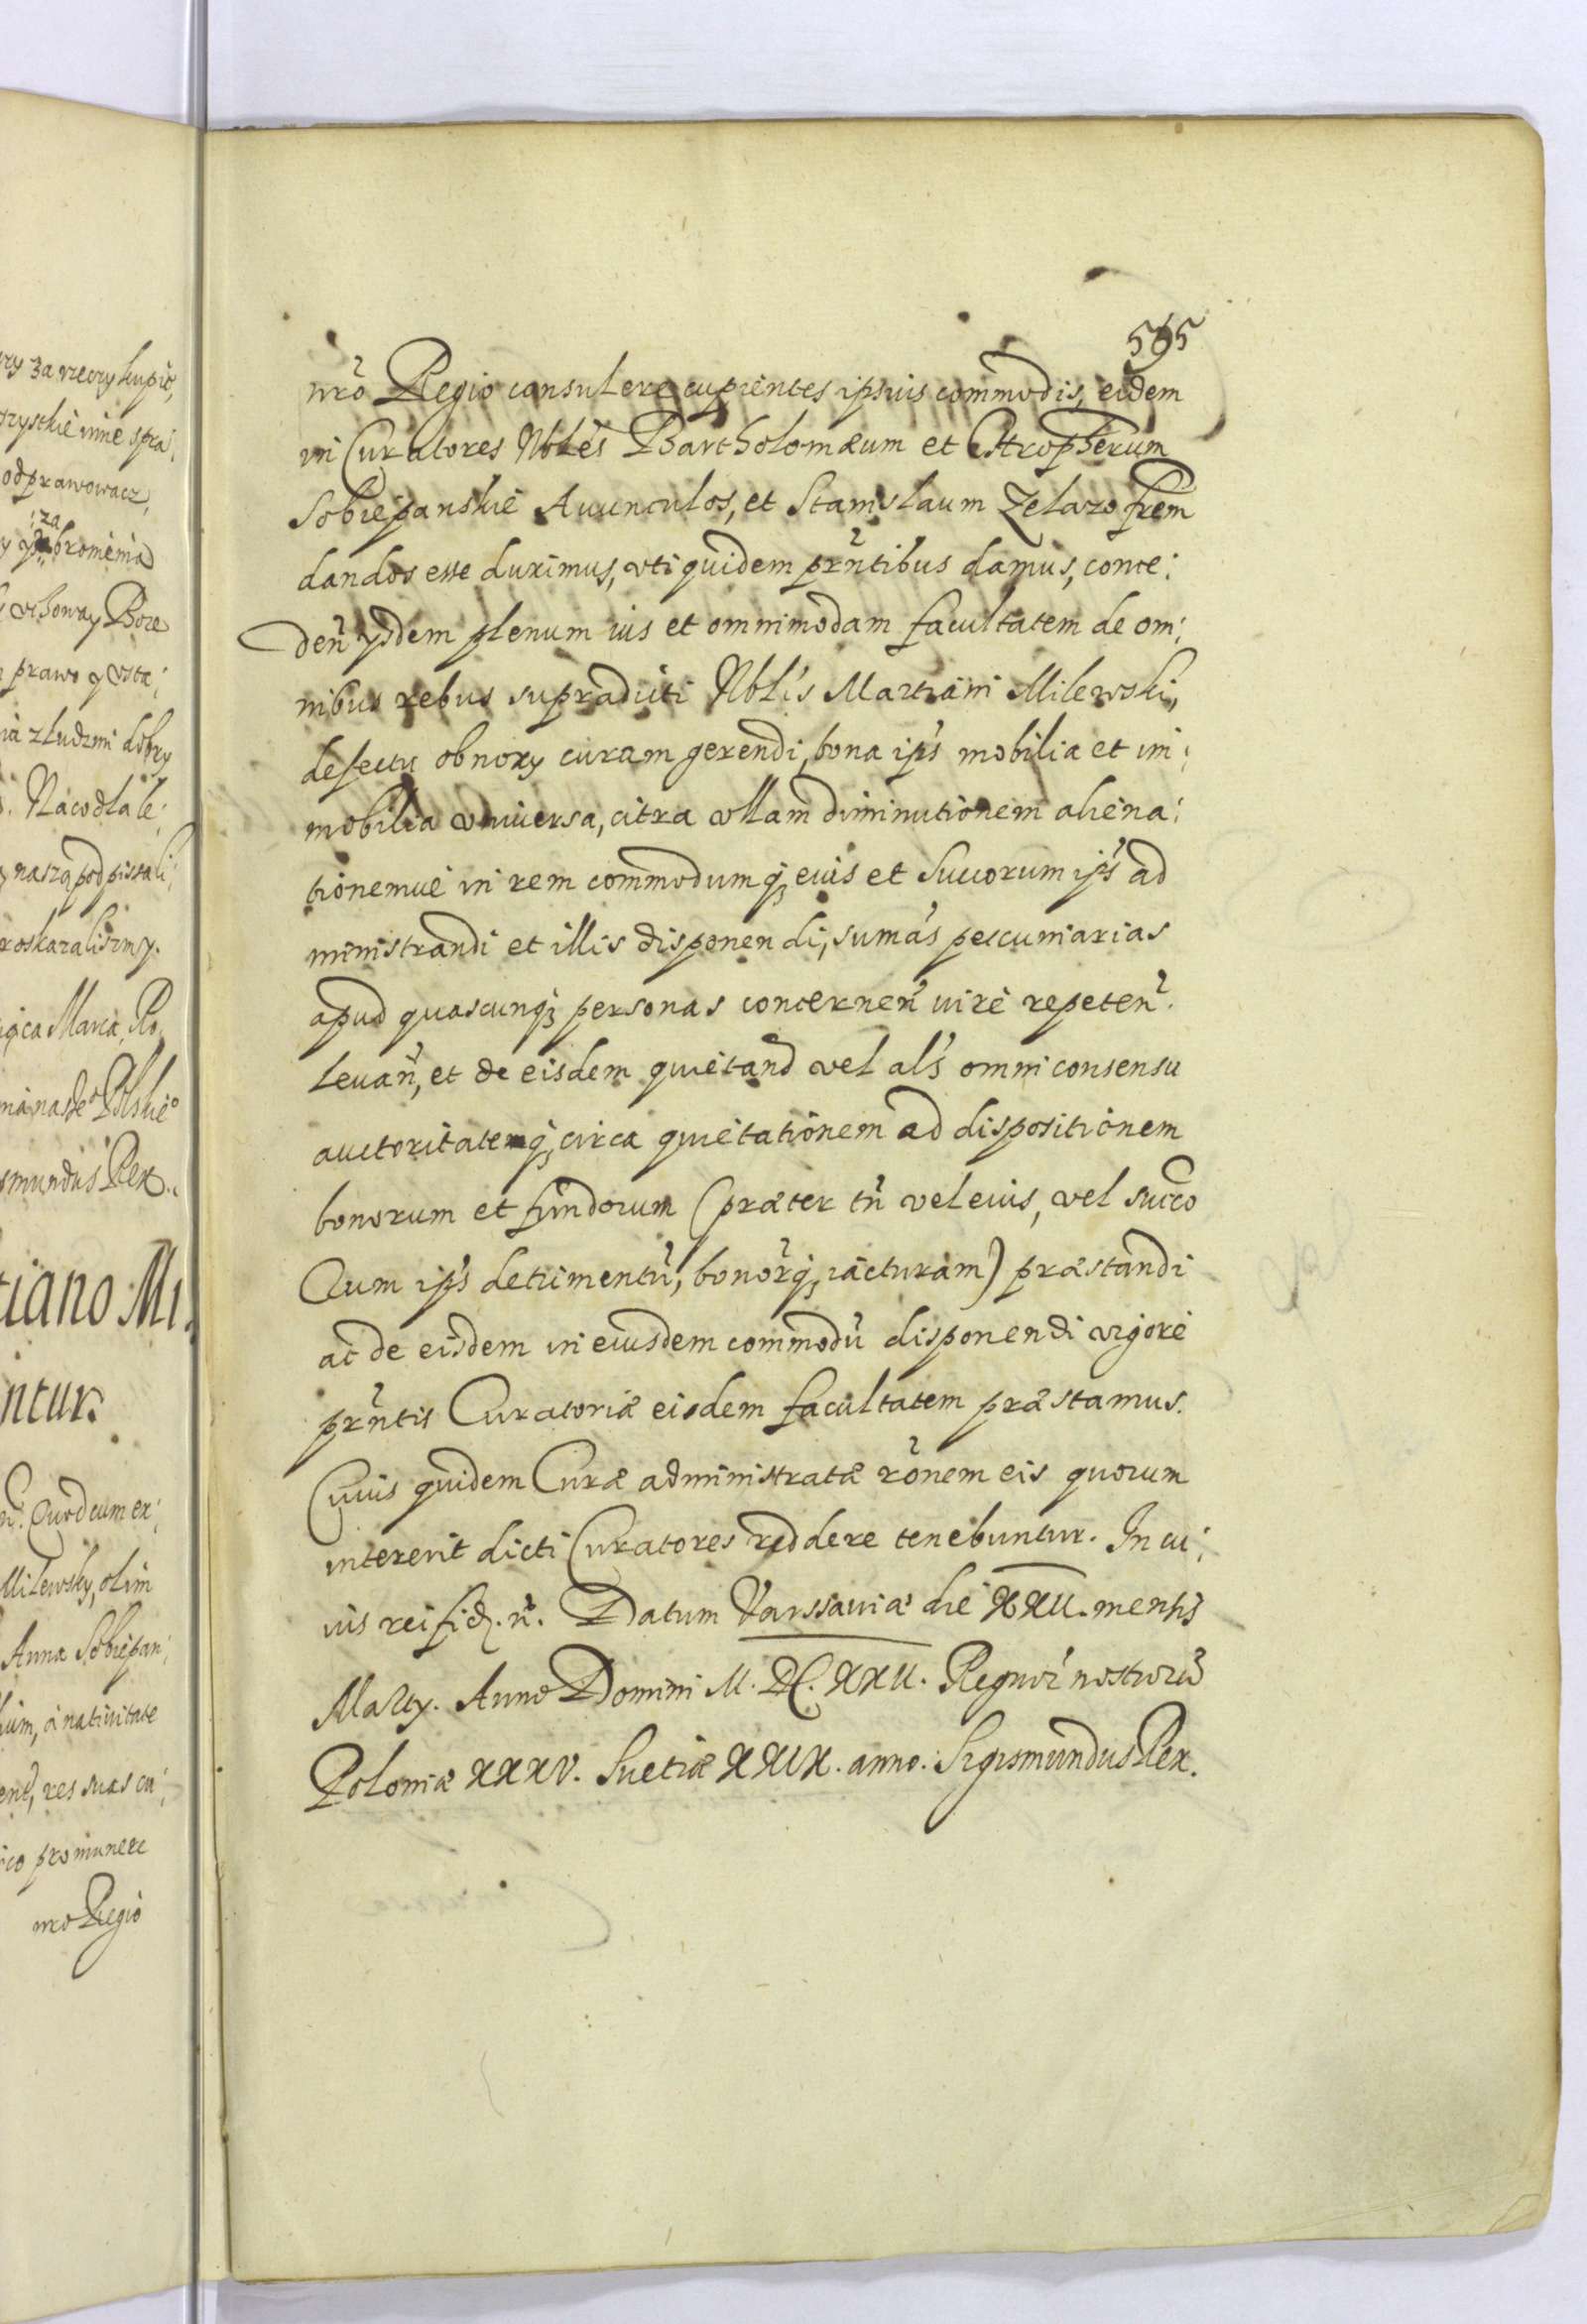 ry za rzeczy kupie,
odprawowacz,
:za
y chowaÿ Boze
prawo y vsta:
ia zludzmi dobry
Nacodla le:
naszą podpissali
roskazalismy.
tiano Mi:
ntur.
n̄. Quod cum ex:
Milewsky, olim
Anna Sobiepan:
lium, à natiuitate
ent, res suas cu:
ico pro munere
nrõ Regio
595
nrõ Regio consulere cupientes ipsius commodis, eidem
in Curatores Nobles Bartholomæum et Chropherum
Sobiepanskie Auunculos, et Stanislaum Zelazo frem
dandos esse duximus, vti quidem prñtibus damus, conce:
deñ ysdem plenum ius et omnimodam facultatem de om:
nibus rebus supradicti Nblis Martiani Milewski,
defectu obnoxy curam gerendi, bona ip's mobilia et im:
mobilia vniuersa, citra vllam diminutionem aliena:
tionemue in rem commodumq; eius et Succorum ip's ad
ministrandi et illis disponendi, suma's pecuniarias
apud quascunq; personas concerneñ iure repeteñ.
leuañ, et de eisdem quietand vel al's omni consensu
auctoritateq; circa quietationem ad dispositionem
bonorum et fundorum (præter tñ vel eius, vel succo
Qum ip's detrimentũ, bonorq; iacturam) præstandi
ac de eisdem in eiusdem commodũ disponendi vigore
prñtis Curatoriæ eisdem facultatem præstamus.
Cuius quidem Curæ administratæ rõnem eis quorum
intererit dicti Curatores reddere tenebuntur. In cu:
ius rei fid. ñ. Datum Varssauiæ die XXII. mensis
Marty. Anno Domini M. DC. XXII. Regnor̃ nostrorũ
Poloniæ XXXV. Suetiæ XXIX. anno. Sigismundus Rex.